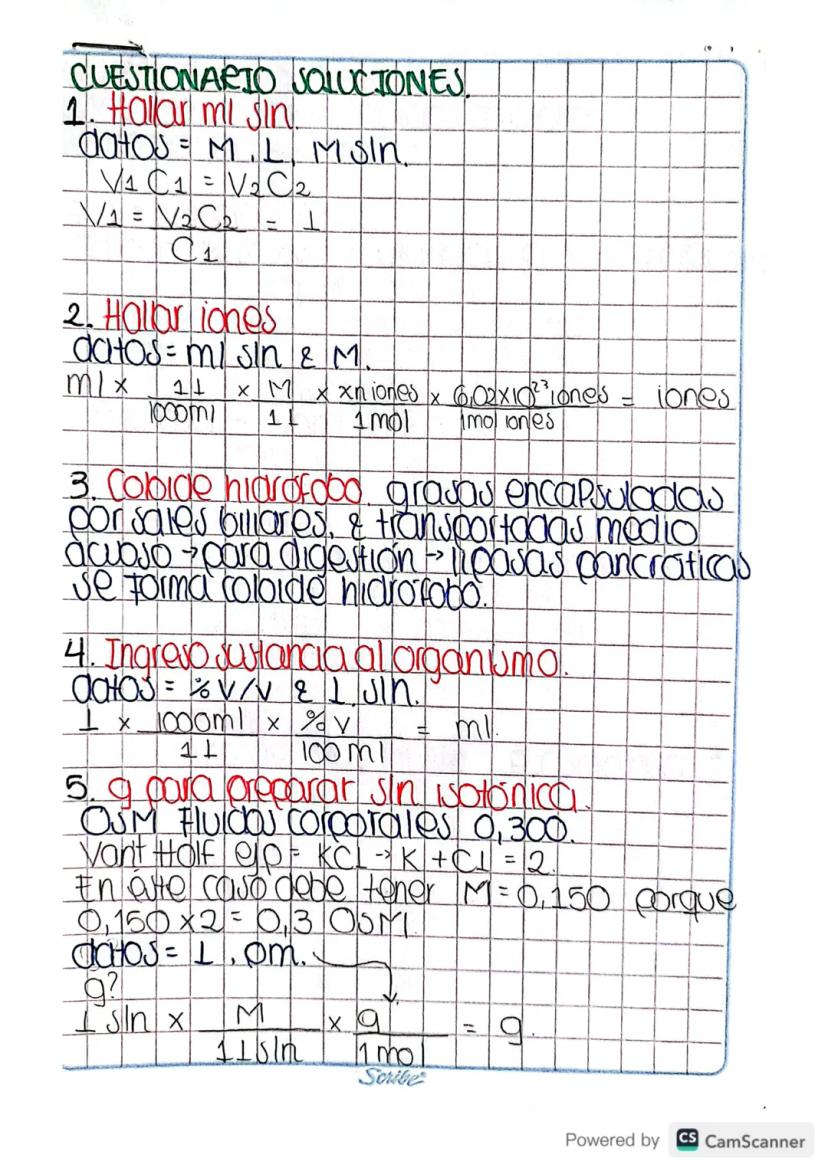 CUESTIONARIO SOLUCIONES.
1. Hallar ml sln.
datos = M, L, M sln.
V1 C1 = V2 C2
V1 = V2C2 = L
C1
2. Hallar iones
datos = ml sln & M.
ml x 1L x M x xn iones x 6,02x10²³ iones = iones
1000ml 1L 1mol 1mol iones
3. Coloide hidrófobo. grasas encapsuladas
por sales biliares, & transportadas medio
acuoso → para digestión → lipasas pancráticas
se forma coloide hidrófobo.
4. Ingreso sustancia al organismo.
datos = % V/V & L sln.
L x 1000ml x % V = ml.
1L 100 ml
5. g para preparar sln isotónica.
OSM Fluidos corporales 0,300.
Vant Half ejp = KCL → K + CL = 2.
En éste caso debe tener M = 0,150 porque
0,150 x 2 = 0,3 OSM.
datos = L, pm.
g?
L sln x M x g = g.
1L sln 1 mol
Scribe
Powered by CS CamScanner